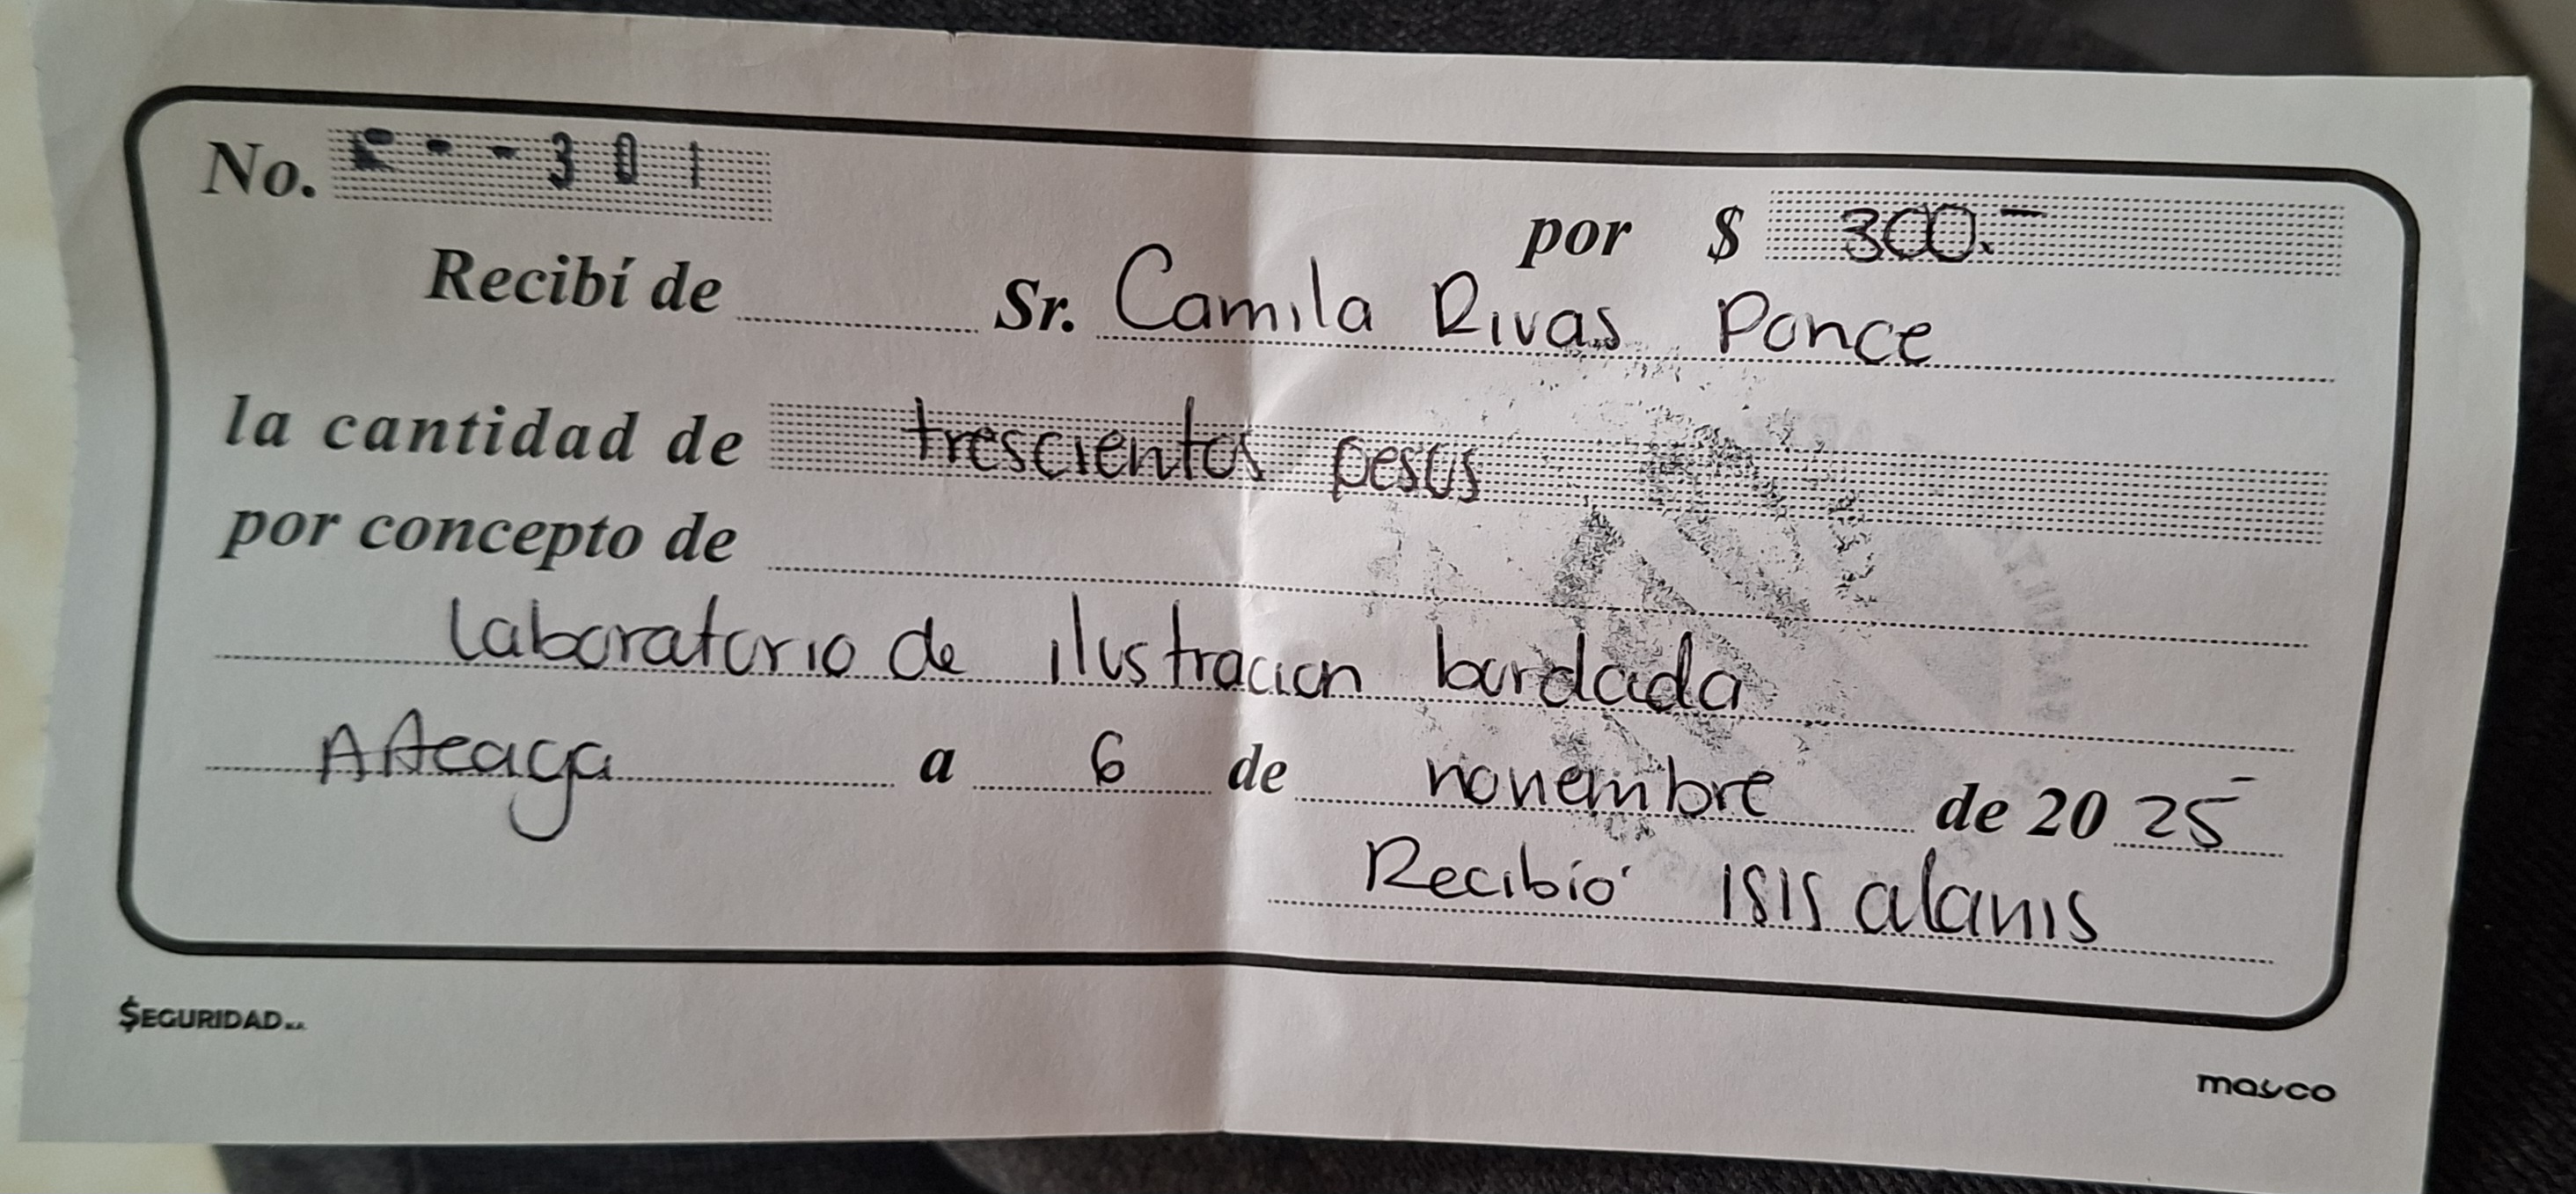 No. - - 301
por $ 300.-
Recibí de Sr. Camila Rivas Ponce
la cantidad de trescientos pesos
por concepto de
laboratorio de ilustracion bordada
Arteaga a 6 de noviembre de 20 25-
Recibió Isis alanis
$EGURIDAD
mayco